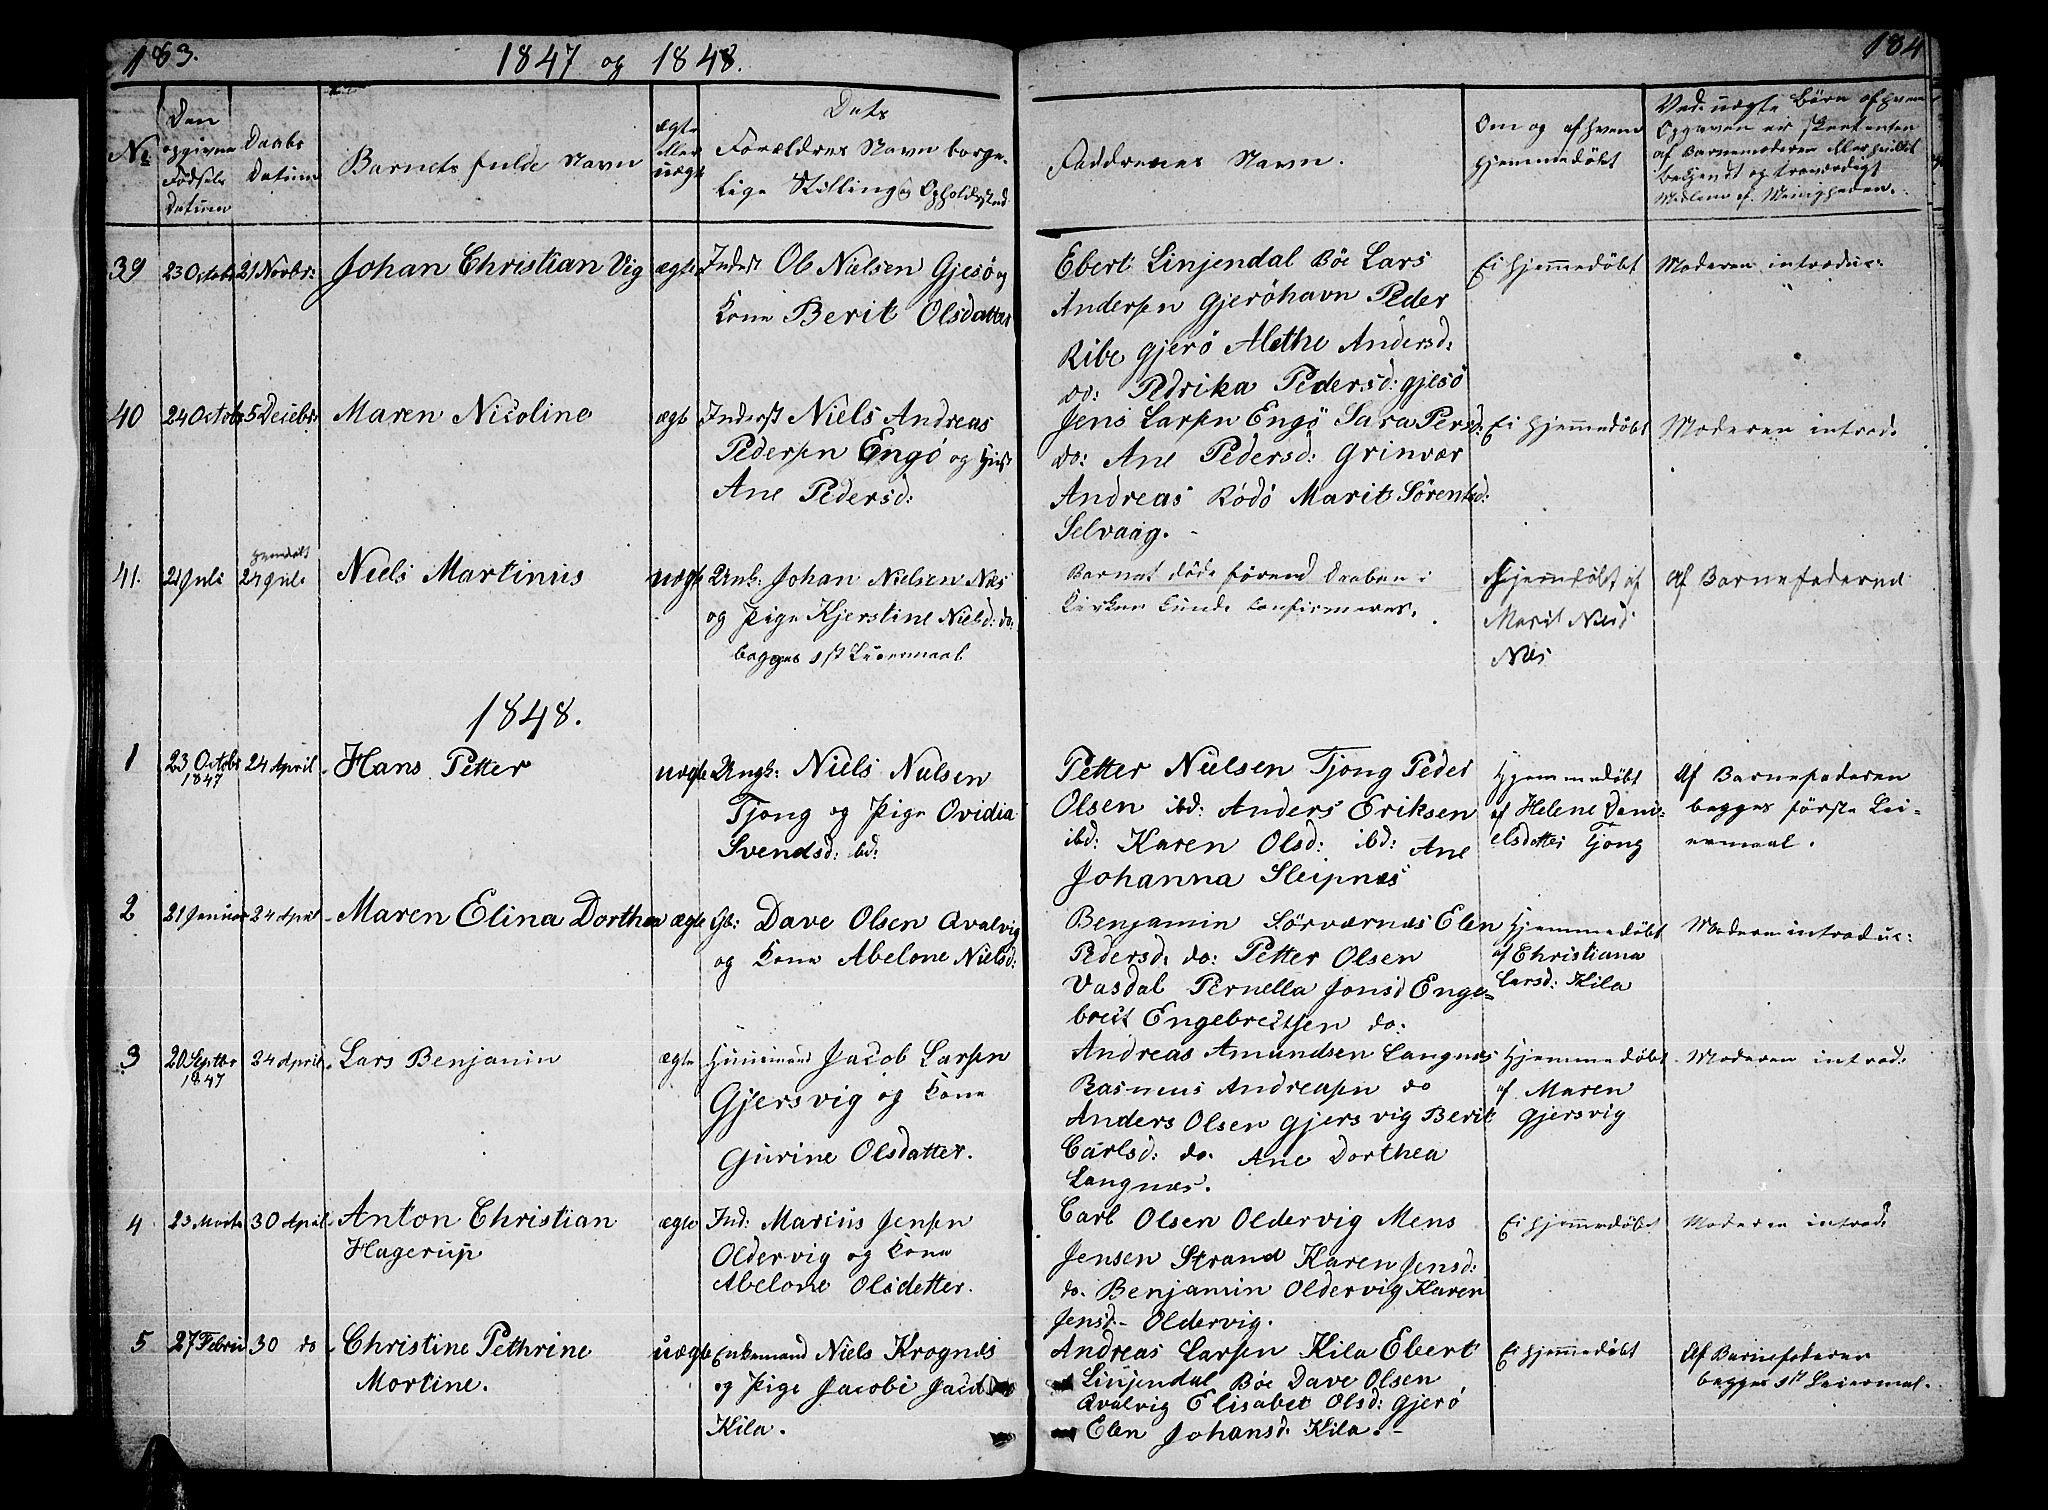 183.
1847 og 1848.
184
No
Den opgivne Fødsels Datum
Daabs Datum
Barnets fulde Navn
ægte eller uægte
Dets Forældres Navn borgelige Stilling og Opholdssted
Faddrenes Navn.
Om og af hvem hjemmedøbt
Ved uægte Børn af hvem Opgaven er skeet enten af Barnemoderen eller hvilket bekjendt og troværdigt Medlem af Menigheden.
39
23 Octob
21 Novbr:
Johan Christian Vig
ægte
Inderst Ole Nielsen Gjesø og
Kone Berit Olsdatter
Ebert Linjendal Böe Lars
Andersen Gjeröhavn Peder
Ribe gjerö Alethe Andersd:
do: Pedrika Pedersd: gjesö
Ei hjemmedöbt
Moderen introduc:
40
24 Octob
5 Decebr:
Maren Nicoline
ægte
Inderst Niels Andreas
Pedersen Engö og
Ane Pedersd:
Jens Larsen Engö Sara Persd:
do: Ane Pedersd: Grinvær
Andreas Rödö Marit Sörensd:
Selvaag.
Ei hjemmedöbt
Moderen introd:
41.
21 Juli
hjemdöbt
24 Juli
Niels Martinus
uægte
Unk: Johan Nielsen Næs
og Pige Kjerstine Nielsd: do:
begges 1st Leiermaal
Barnet döde förend Daaben i
Kirken kunde confirmeres.
Hjemdöbt af
Marit Nielsd
Næs
Af Barnefaderen
1848.
1
23 Octobr
1847
24 April
Hans Petter
uægte
Ungk: Niels Nielsen
Tjong og Pige Ovidia
Svendsd: ibd:
Petter Nielsen Tjong Peder
Olsen ibd: Anders Eriksen
ibd: Karen Olsd: ibd: Ane
Johanna Sleipnæs
Hjemmedöbt
af Helene Dani-
elsdatter Tjong
Af Barnefaderen
begges förste Lei-
ermaal.
2
21 Januar
24 April
Maren Elina Dorthea
ægte
Gb: Dave Olsen Avalvig
og Kone Abelone Nielsd:
Benjamin Sörværnæs Elen
Pedersd: do: Petter Olsen
Vasdal Pernella Jonsd Enge-
bret Engebretsen do:
Hjemmedöbt
af Christiana
Larsd: Kila
Moderen introduc:
3
20 Septbr
1847
24 April
Lars Benjamin
ægte
Huusmand Jacob Larsen
Gjersvig og Kone
Gurine Olsdatter.
Andreas Amundsen Langnæs
Rasmus Andreasen do
Anders Olsen gjersvig Berit
Carlsd: do. Ane Dorthea
Langnæs.
Hjemmedöbt
af Maren
Gjersvig
Moderen introd:
4
23 Marts
30 April
Anton Christian
Hagerup
ægte
Ind: Marcus Jensen
Oldervig og Kone
Abelone Olsdetter.
Carl Olsen Oldervig Mens
Jensen Strand Karen Jensd:
do. Benjamin Oldervig Karen
Jensd- Oldervig.
Ei hjemmedöbt
Moderen introd:
5
27 Februr
30 do
Christine Pethrine
Mortine.
uægte
Enkemand Niels Krognæs
og Pige Jacobi
Kila.
Andreas Larsen Kila Ebert
Linjendal Böe Dave Olsen
Avalvig Elisabet Olsd: gjerö
Elen Johansd: Kila.
Ei hjemmedöbt
Af Barnefaderen
begges 1st Leiermal.